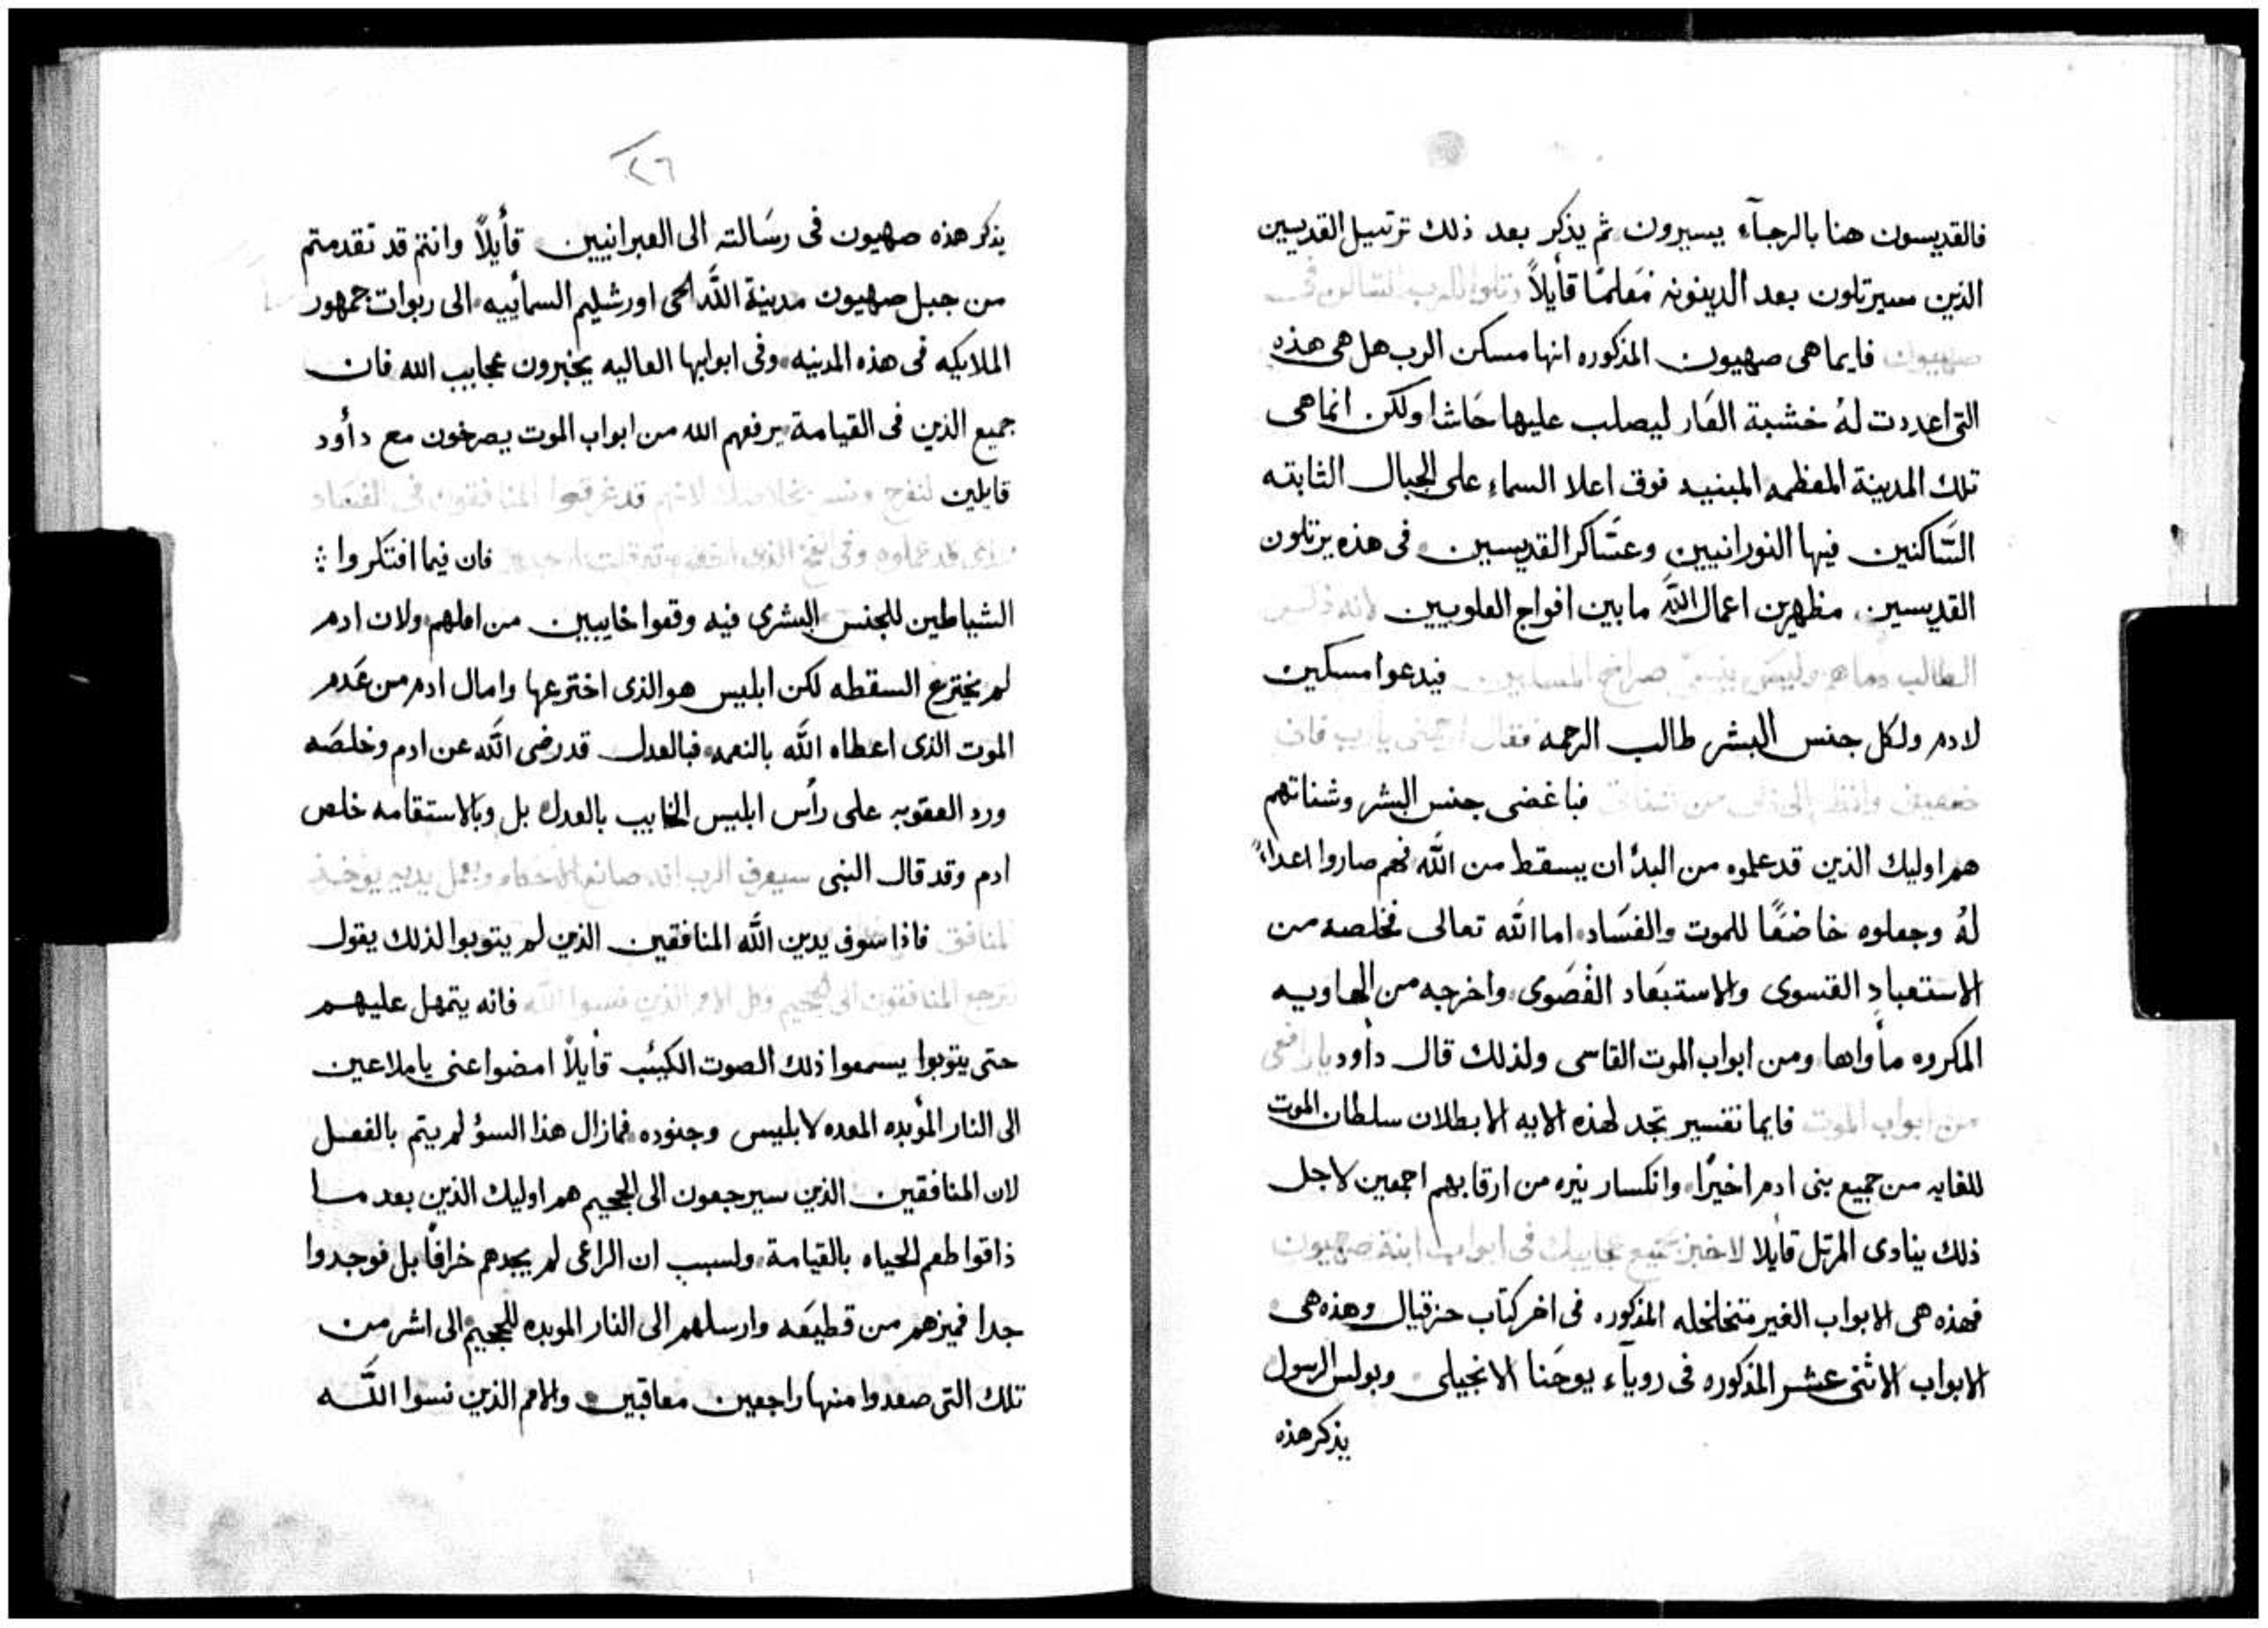 فالقديسون هنا بالرجآء يسيرون ثم يذكر بعد ذلك ترتيل القديسين
الذين سيرتلون بعد الدينونه مَعلمًا قايلاً رتلوا للرب الساكن في
صهيون فايما هى صهيون المذكوره انها مسكن الرب هل هى هذه
التى اعددت لهُ خشبة العَار ليصلب عليها حَاشا ولكن انما هى
تلك المدينة المعظمه المبنيه فوق اعلا السماء على الجبال الثابته
السَّاكنين فيها النورانيين وعسَاكر القديسين فى هذه يرتلون
القديسين مظهرين اعمال اللَّه ما بين افواج العلويين لانه ذكر
الطالب دماهم وليس ينسى صراخ المساكين فيدعوا مسكين
لادم ولكل جنس البشر طالب الرحمه فقال ارحمنى يارب فان
وانظر الى ذلى من فباغضى جنس البشر وشناتهم
هم اوليك الذين قد علموه من البدُ ان يسقط من اللَّه فهم صاروا اعداءً
لهُ وجعلوه خاضعًا للموت والفسَاد اما اللَّه تعالى فخلصه من
الاستعباد القسوى والاستبعَاد القصَوى واخرجه من الهاويه
المكروه مأواها ومن ابواب الموت القاسى ولذلك قال داود يا رافعى
من ابواب الموت فايما تفسير تجد لهذه الايه الا بطلان سلطان الموت
للغايه من جميع بنى ادم اخيرًا وانكسار نيره من ارقابهم اجمعين لاجل
ذلك ينادى المرتل قايلا لاخبر بجميع عجايبك فى ابواب ابنة صهيون
فهذه هى الابواب الغير متخلخله المذكوره فى اخر كتاب حزقيال وهذه هى
الابواب الاثنى عشر المذكوره فى روياء يوحَنا الانجيلى وبولس الرسول
يذكر هذه
٢٦
يذكر هذه صهيون فى رسَالته الى العبرانيين قأيلاً وانتم قد تقدمتم
من جبل صهيون مدينة اللَّه الحى اورشليم السمأييه الى ربوات جمهور
الملايكه فى هذه المدينه وفى ابوابها العاليه يخبرون عجايب الله فان
جميع الذين فى القيامة يرفعهم الله من ابواب الموت يصرخون مع دأود
قايلين لنفرح ونسر بخلاصك لانهم قد غرقوا المنافقون فى الفساد
الذى قد عملوه وفى الفخ الذى اخفوه تعرقلت ارجلهم فان فيما افتكروا
الشياطين للجنس البشرى فيه وقعوا خايبين من املهم ولان ادم
لم يخترع السقطه لكن ابليس هو الذى اخترعها وامال ادم من عَدم
الموت الذى اعطاه اللَّه بالنعمه فبالعدل قد رضى اللَّه عن ادم وخلصَه
ورد العقوبه على رأس ابليس الخايب بالعدل بل وبالاستقامه خلص
ادم وقد قال النبى سيعرف الرب انه صانع الاحكام وبعمل يديه يوخذ
المنافق فاذا سوف يدين اللَّه المنافقين الذين لم يتوبوا لذلك يقول
لترجع المنافقون الى الجحيم وكل الامم الذين نسوا اللَّه فانه يتمهل عليهم
حتى يتوبوا يسمعوا ذلك الصوت الكيئب قأيلاً امضوا عنى يا ملاعين
الى النار المؤبده المعده لابليس وجنوده فمازال هذا السؤ لم يتم بالفعل
لان المنافقين الذين سيرجعون الى الجحيم هم اوليك الذين بعد ما
ذاقوا طعم الحياه بالقيامة ولسبب ان الراعى لم يجدهم خرافًا بل فوجدوا
جدا فميزهم من قطيعَه وارسلهم الى النار الموبده للجحيم الى اشر من
تلك التى صعدوا منها راجعين معاقبين والامم الذين نسوا اللَّه